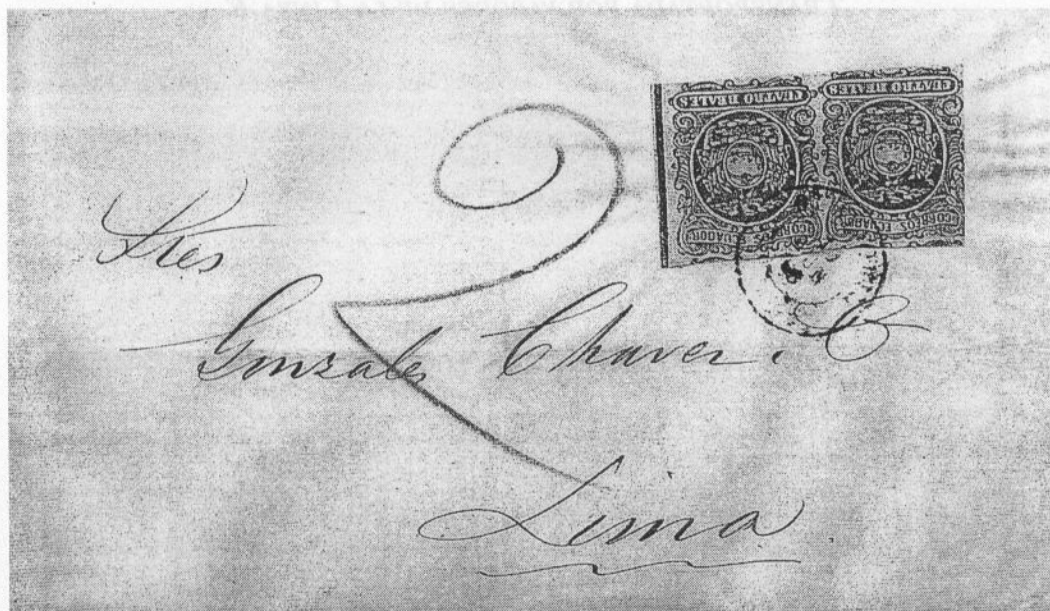 CUATRO REALES CUATRO REALES
CORREOS ECUADOR CORREOS ECUADOR
2
Sres
Gonzales Chavez. C
Lima